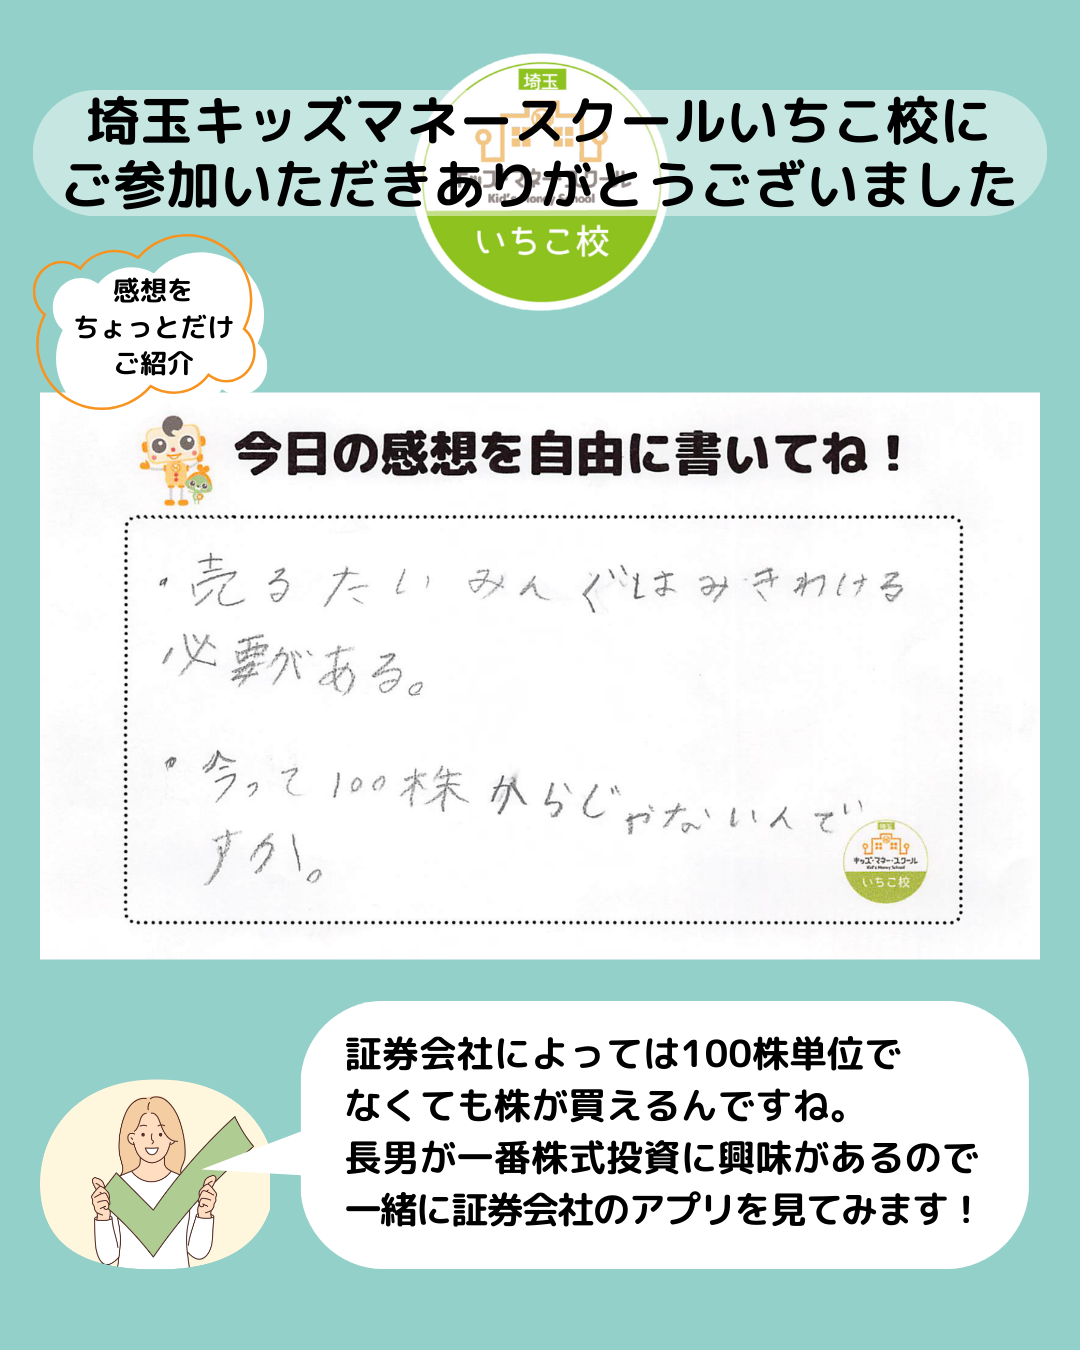 埼玉
埼玉キッズマネースクールいちこ校に
ご参加いただきありがとうございました
キッズ・マネー・スクール
Kid's Money School
いちこ校
感想を
ちょっとだけ
ご紹介
今日の感想を自由に書いてね！
・売るたいみんぐはみきわける
必要がある。
・今って100株からじゃないんで
すか。
埼玉
キッズ・マネー・スクール
Kid's Money School
いちこ校
証券会社によっては100株単位で
なくても株が買えるんですね。
長男が一番株式投資に興味があるので
一緒に証券会社のアプリを見てみます！